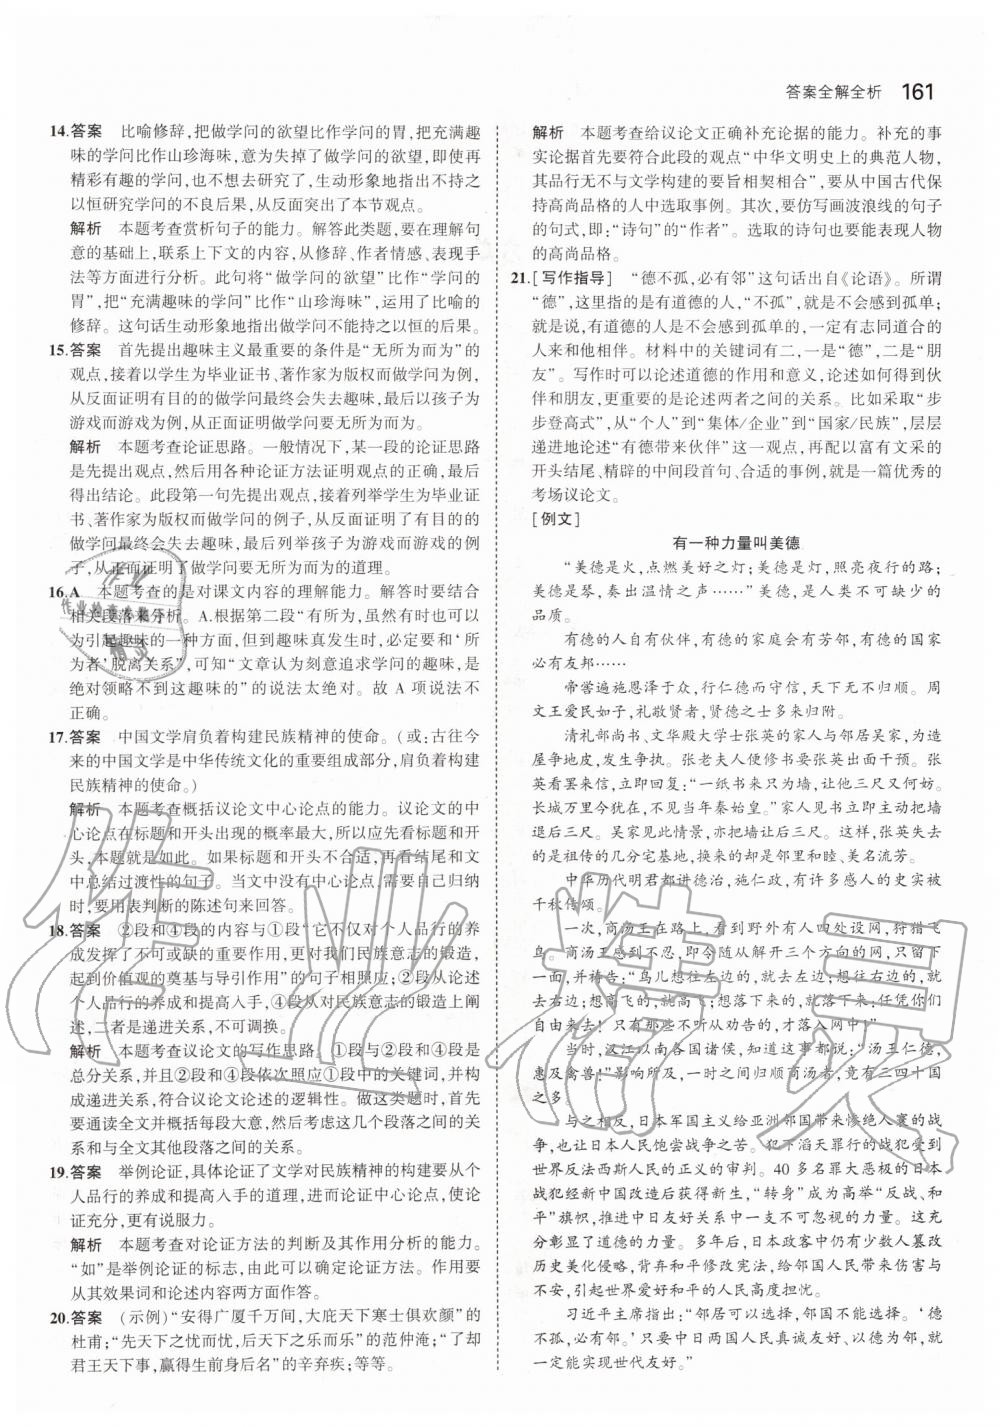 答案全解全析 161
14.答案 比喻修辞,把做学问的欲望比作学问的胃,把充满趣
味的学问比作山珍海味,意为失掉了做学问的欲望,即使再
精彩有趣的学问,也不想去研究了,生动形象地指出不持之
以恒研究学问的不良后果,从反面突出了本节观点。
解析 本题考查赏析句子的能力。解答此类题,要在理解句
意的基础上,联系上下文的内容,从修辞、作者情感、表现手
法等方面进行分析。此句将“做学问的欲望”比作“学问的
胃”,把“充满趣味的学问”比作“山珍海味”,运用了比喻的
修辞。这句话生动形象地指出做学问不能持之以恒的后果。
15.答案 首先提出趣味主义最重要的条件是“无所为而为”的
观点,接着以学生为毕业证书、著作家为版权而做学问为例,
从反面证明有目的的做学问最终会失去趣味,然后以孩子为
游戏而游戏为例,从正面证明做学问要无所为而为。
解析 本题考查论证思路。一般情况下,某一段的论证思路
是先提出观点,然后用各种论证方法证明观点的正确,最后
得出结论。此段第一句先提出观点,接着列举学生为毕业证
书、著作家为版权而做学问的例子,从反面证明了有目的的
做学问最终会失去趣味,然后列举孩子为游戏而游戏的例
子,从正面证明了做学问要无所为而为的道理。
16.A 本题考查的是对课文内容的理解。解答时要结合
相关段落来分析。A.根据第二段“有所为,虽然有时也可以
为引起趣味的一种方面,但到趣味真发生时,必定要和‘所
为者’脱离关系”,可知“文章认为刻意追求学问的趣味,是
绝对领略不到这趣味的”的说法太绝对。故 A 项说法不
正确。
17.答案 中国文学肩负着构建民族精神的使命。(或:古往今
来的中国文学是中华传统文化的重要组成部分,肩负着构建
民族精神的使命。)
解析 本题考查概括议论文中心论点的能力。议论文的中
心论点在标题和开头出现的概率最大,所以应先看标题和开
头,本题就是如此。如果标题和开头不合适,再看结尾和文
中总结过渡性的句子。当文中没有中心论点,需要自己归纳
时,要用表判断的陈述句来回答。
18.答案 ②段和④段的内容分别与①段中“它不仅对个人品行的养
成发挥了不可或缺的重要作用,更对我们民族意志的锻造,
起到价值观的奠基与导引作用”的句子相照应;②段从论述
个人品行的养成和提高入手,④段从对民族意志的锻造上阐
述,二者是递进关系,不可调换。
解析 本题考查议论文的写作思路。①段与②段和④段是
总分关系,并且②段和④段依次照应①段中的关键词,并构
成递进关系,符合议论文论述的逻辑性。做此类题时,首先
要通读全文并概括每段大意,然后考虑这几个段落之间的关
系和与全文其他段落之间的关系。
19.答案 举例论证,具体论证了文学对民族精神的构建要从个
人品行的养成和提高入手的道理,进而论证中心论点,使论
证充分,更有说服力。
解析 本题考查对论证方法的判断及其作用分析的能力。
“如”是举例论证的标志,由此可以确定论证方法。作用要
从其效果词和论述内容两方面作答。
20.答案 (示例)“安得广厦千万间,大庇天下寒士俱欢颜”的
杜甫;“先天下之忧而忧,后天下之乐而乐”的范仲淹;“了却
君王天下事,赢得生前身后名”的辛弃疾;等等。
解析 本题考查给议论文正确补充论据的能力。补充的事
实论据首先要符合此段的观点“中华文明史上的典范人物,
其品行无不与文学构建的要旨相契相合”,要从中国古代保
持高尚品格的人中选取事例。其次,要仿写画波浪线的句子
的句式,即:“诗句”的“作者”。选取的诗句也要能表现人物
的高尚品格。
21.[写作指导] “德不孤,必有邻”这句话出自《论语》。所谓
“德”,这里指的是有道德的人,“不孤”,就是不会感到孤单;
就是说,有道德的人是不会感到孤单的,一定有志同道合的
人来和他相伴。材料中的关键词有二,一是“德”,二是“朋
友”。写作时可以论述道德的作用和意义,论述如何得到伙
伴和朋友,更重要的是论述两者之间的关系。比如采取“步
步登高式”,从“个人”到“集体/企业”到“国家/民族”,层层
递进地论述“有德带来伙伴”这一观点,再配以富有文采的
开头结尾、精辟的中间段首句、合适的事例,就是一篇优秀的
考场议论文。
[例文]
有一种力量叫美德
“美德是火,点燃美好之灯;美德是灯,照亮夜行的路;
美德是路,奏出温情之声……”美德,是人类不可缺少的
品质。
有德的人自有伙伴,有德的家庭会有芳邻,有德的国家
必有友邦……
帝喾遍施恩泽于众,行仁德而守信,天下无不归顺。周
文王爱民如子,礼敬贤者,贤德之士多来归附。
清礼部尚书、文华殿大学士张英的家人与邻居吴家,为
宅基地皮,发生争执。张老夫人便修书要张英出面干预。张
英看罢来信,立即回复:“一纸书来只为墙,让他三尺又何妨。
长城万里今犹在,不见当年秦始皇。”家人见书立即主动把墙
退后三尺。吴家见此情景,亦把墙让后三尺。这样,张英失去
的是祖传的几分宅基地,换来的却是邻里和睦、美名流芳。
中华历代明君都讲德治,施仁政,有许多感人的史诗被
千秋传颂。
一次,商汤王在路上,看到野外有人四处设网,狩猎飞
鸟。商汤王感到不忍,即令随从解开三个方向的网,只留下
一面,并祷告:“鸟儿想往左边的,就去左边;想往右边的,就
去右边;想高飞的,就高飞;想下来的,就下来;任凭你们
自由来去!只有那些不听从劝告的,才落入网中!”
当时,汉江以南各国诸侯,知道这事都说:“汤王仁德,
惠及禽兽!”影响所及,一时之间归顺商汤者,竟有三四十国
之多。
与之相反,日本军国主义给亚洲邻国带来惨绝人寰的战
争,也让日本人民饱尝战争之苦。犯下滔天罪行的战犯受到
世界反法西斯人民的正义的审判。40 多名罪大恶极的日本
战犯经新中国改造后获得新生,“转身”成为高举“反战、和
平”旗帜,推进中日友好关系中一支不可忽视的力量。这充
分彰显了道德的力量。多年后,日本政客中仍有少数人篡改
历史美化侵略,背弃和平修改宪法,给邻国人民带来严重不
安,引起世界爱好和平的人民高度担忧。
习近平主席指出:“邻居可以选择,邻国不能选择。‘德
不孤,必有邻。’只要中日两国人民真诚友好,以德为邻,就
一定能实现世代友好。”
作业精灵